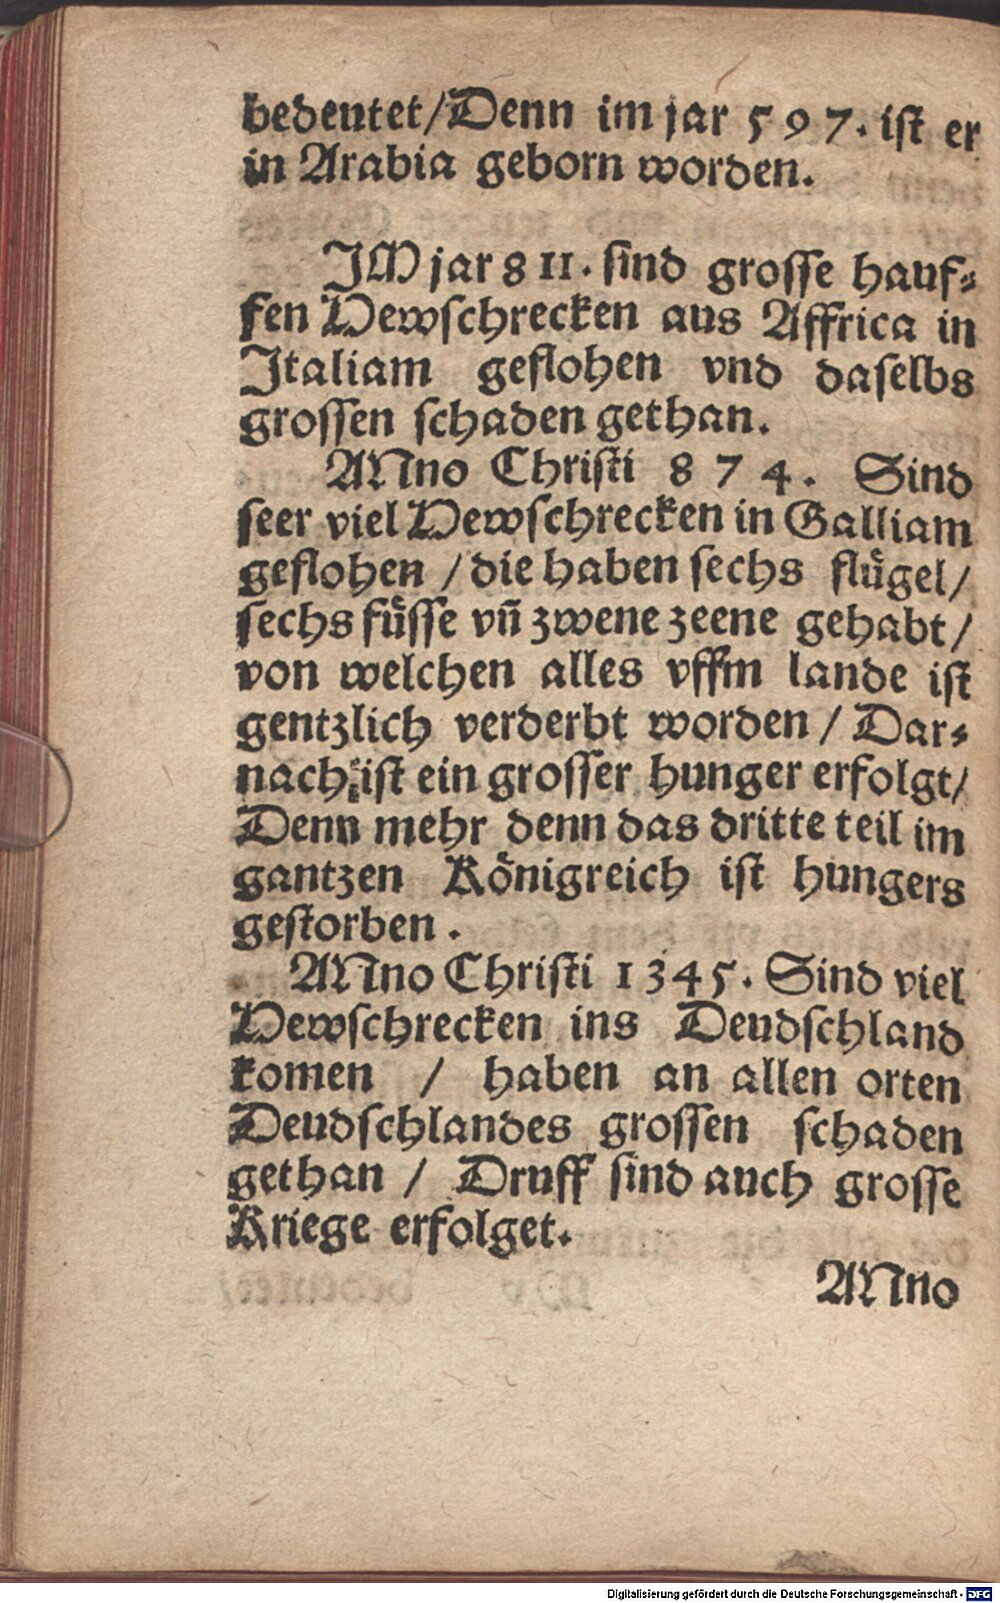 bedeutet/Denn im jar 5 9 7. ist er
in Arabia geborn worden.
JM jar 8 11. sind grosse hauf⸗
fen Hewschrecken aus Affrica in
Italiam geflohen vnd daselbs
grossen schaden gethan.
ANno Christi 8 7 4. Sind
seer viel Hewschrecken in Galliam
geflohen / die haben sechs fluͤgel/
sechs fuͤsse vn̄ zwene zeene gehabt/
von welchen alles vffm lande ist
gentzlich verderbt worden / Dar⸗
nach ist ein grosser hunger erfolgt/
Denn mehr denn das dritte teil im
gantzen Koͤnigreich ist hungers
gestorben.
ANno Christi 1345. Sind viel
Hewschrecken ins Deudschland
komen / haben an allen orten
Deudschlandes grossen schaden
gethan / Druff sind auch grosse
Kriege erfolget.
ANno
Digitalisierung gefördert durch die Deutsche Forschungsgemeinschaft - DFG